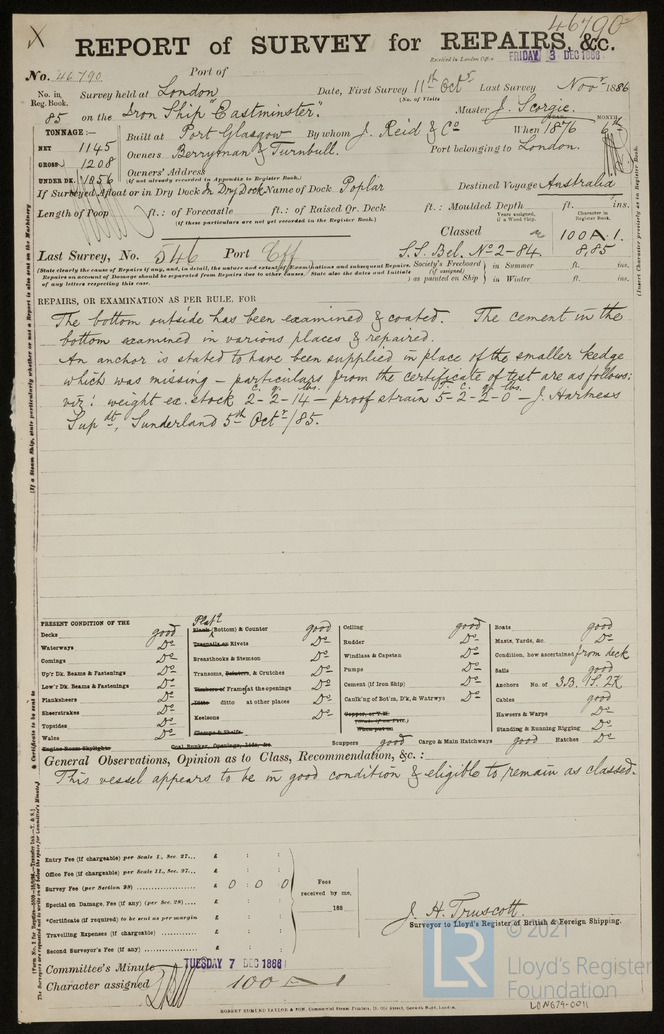 46790
X
REPORT of SURVEY for REPAIRS, &c.
Received in London Office FRIDAY 3 DEC 1886
No. 46790. Port of
No. in Reg. Book. Survey held at London Date, First Survey 11th Octr Last Survey Novr 1886
(No. of Visits
85 on the Iron Ship "Eastminster". Master J. Scorgie.
TONNAGE:— Built at Port Glasgow By whom J. Reid & Co When 1876 MONTH 6
NET 1145
GROSS 1208 Owners Berryman & Turnbull. Port belonging to London.
UNDER DK. 1056 Owners' Address
(if not already recorded in Appendix to Register Book.)
If Surveyed Afloat or in Dry Dock In Dry Dock Name of Dock Poplar Destined Voyage Australia
Length of Poop ft.: of Forecastle ft.: of Raised Qr. Deck ft.: Moulded Depth ft. ins.
(if these particulars are not yet recorded in the Register Book.)
Years assigned, if a Wood Ship. Character in Register Book.
Classed 100A1.
Last Survey, No. 546 Port Cff S.S. Bel. No 2-84. 8,85
(State clearly the cause of Repairs if any, and, in detail, the nature and extent of Examinations and subsequent Repairs.
Repairs on account of Damage should be separated from Repairs due to other causes. State also the dates and Initials
of any letters respecting this case.
Society's Freeboard (if assigned) as painted on Ship } in Summer ft. ins.
in Winter ft. ins.
REPAIRS, OR EXAMINATION AS PER RULE. FOR
The bottom outside has been examined & coated. The cement in the
bottom examined in various places & repaired.
An anchor is stated to have been supplied in place of the smaller kedge
which was missing - particulars from the certificate of test are as follows:
viz: weight ex. stock 2-2-14 - proof strain 5-2-2-0 - J. Hartness
Supdt, Sunderland 5th Octr/85.
PRESENT CONDITION OF THE
Decks good
Waterways Do
Comings Do
Up'r Dk. Beams & Fastenings Do
Low'r Dk. Beams & Fastenings Do
Planksheers Do
Sheerstrakes Do
Topsides Do
Wales Do
Engine Room Skylights
Plate
Plank (Bottom) & Counter good
Treenails or Rivets Do
Breasthooks & Stemson Do
Transoms, Pointers, & Crutches Do
Timbers of Frame at the openings Do
Ditto ditto at other places Do
Keelsons Do
Clamps & Shelfs
Coal Bunker, Openings, Lids, &c.
Ceiling good
Rudder Do
Windlass & Capstan Do
Pumps Do
Cement (if Iron Ship) Do
Caulk'ng of Bot'm, D'k, & Watrwys Do
Copper, or Y.M.
When put on
Scuppers good Cargo & Main Hatchways good Hatches Do
Boats good
Masts, Yards, &c. Do
Condition, how ascertained from deck
Sails good
Anchors No. of 3.B. 1S. 2K
Cables good
Hawsers & Warps Do
Standing & Running Rigging Do
General Observations, Opinion as to Class, Recommendation, &c.:—
This vessel appears to be in good condition & eligible to remain as classed.
Entry Fee (if chargeable) per Scale I., Sec. 27... £ : :
Office Fee (if chargeable) per Scale II., Sec. 27... £ : :
Survey Fee (per Section 28) £ 0 : 0 : 0
Special on Damage, Fee (if any) (per Sec. 28) £ : :
*Certificate (if required) to be sent as per margin £ : :
Travelling Expenses (if chargeable) £ : :
Second Surveyor's Fee (if any) £ : :
Fees received by me, 188
J. H. Truscott.
Surveyor to Lloyd's Register of British & Foreign Shipping.
Committee's Minute TUESDAY 7 DEC 1886
Character assigned 100 A 1
ROBERT EDMUND TAYLOR & SON, Commercial Steam Printers, 19, Old Street, Goswell Road, London.
LR
© 2021
Lloyd's Register
Foundation
LON679-0011
(If a Steam Ship, state particularly whether or not a Report is also sent on the Machinery
(Insert Character precisely as in Register Book.